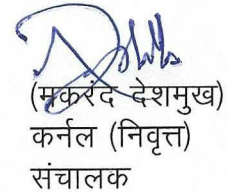 (मकरंद देशमुख)
कर्नल (निवृत्त)
संचालक